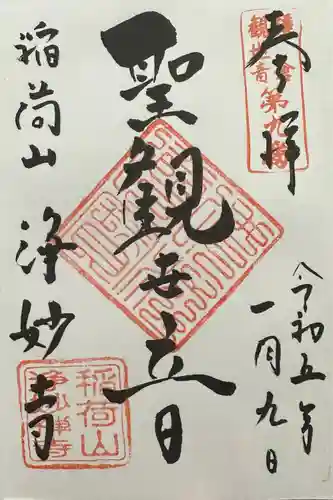 奉拝
鎌倉
観世音
第九番
令和五年
一月九日
聖観世音
稲荷山
浄妙寺
稲荷山
浄妙禅寺